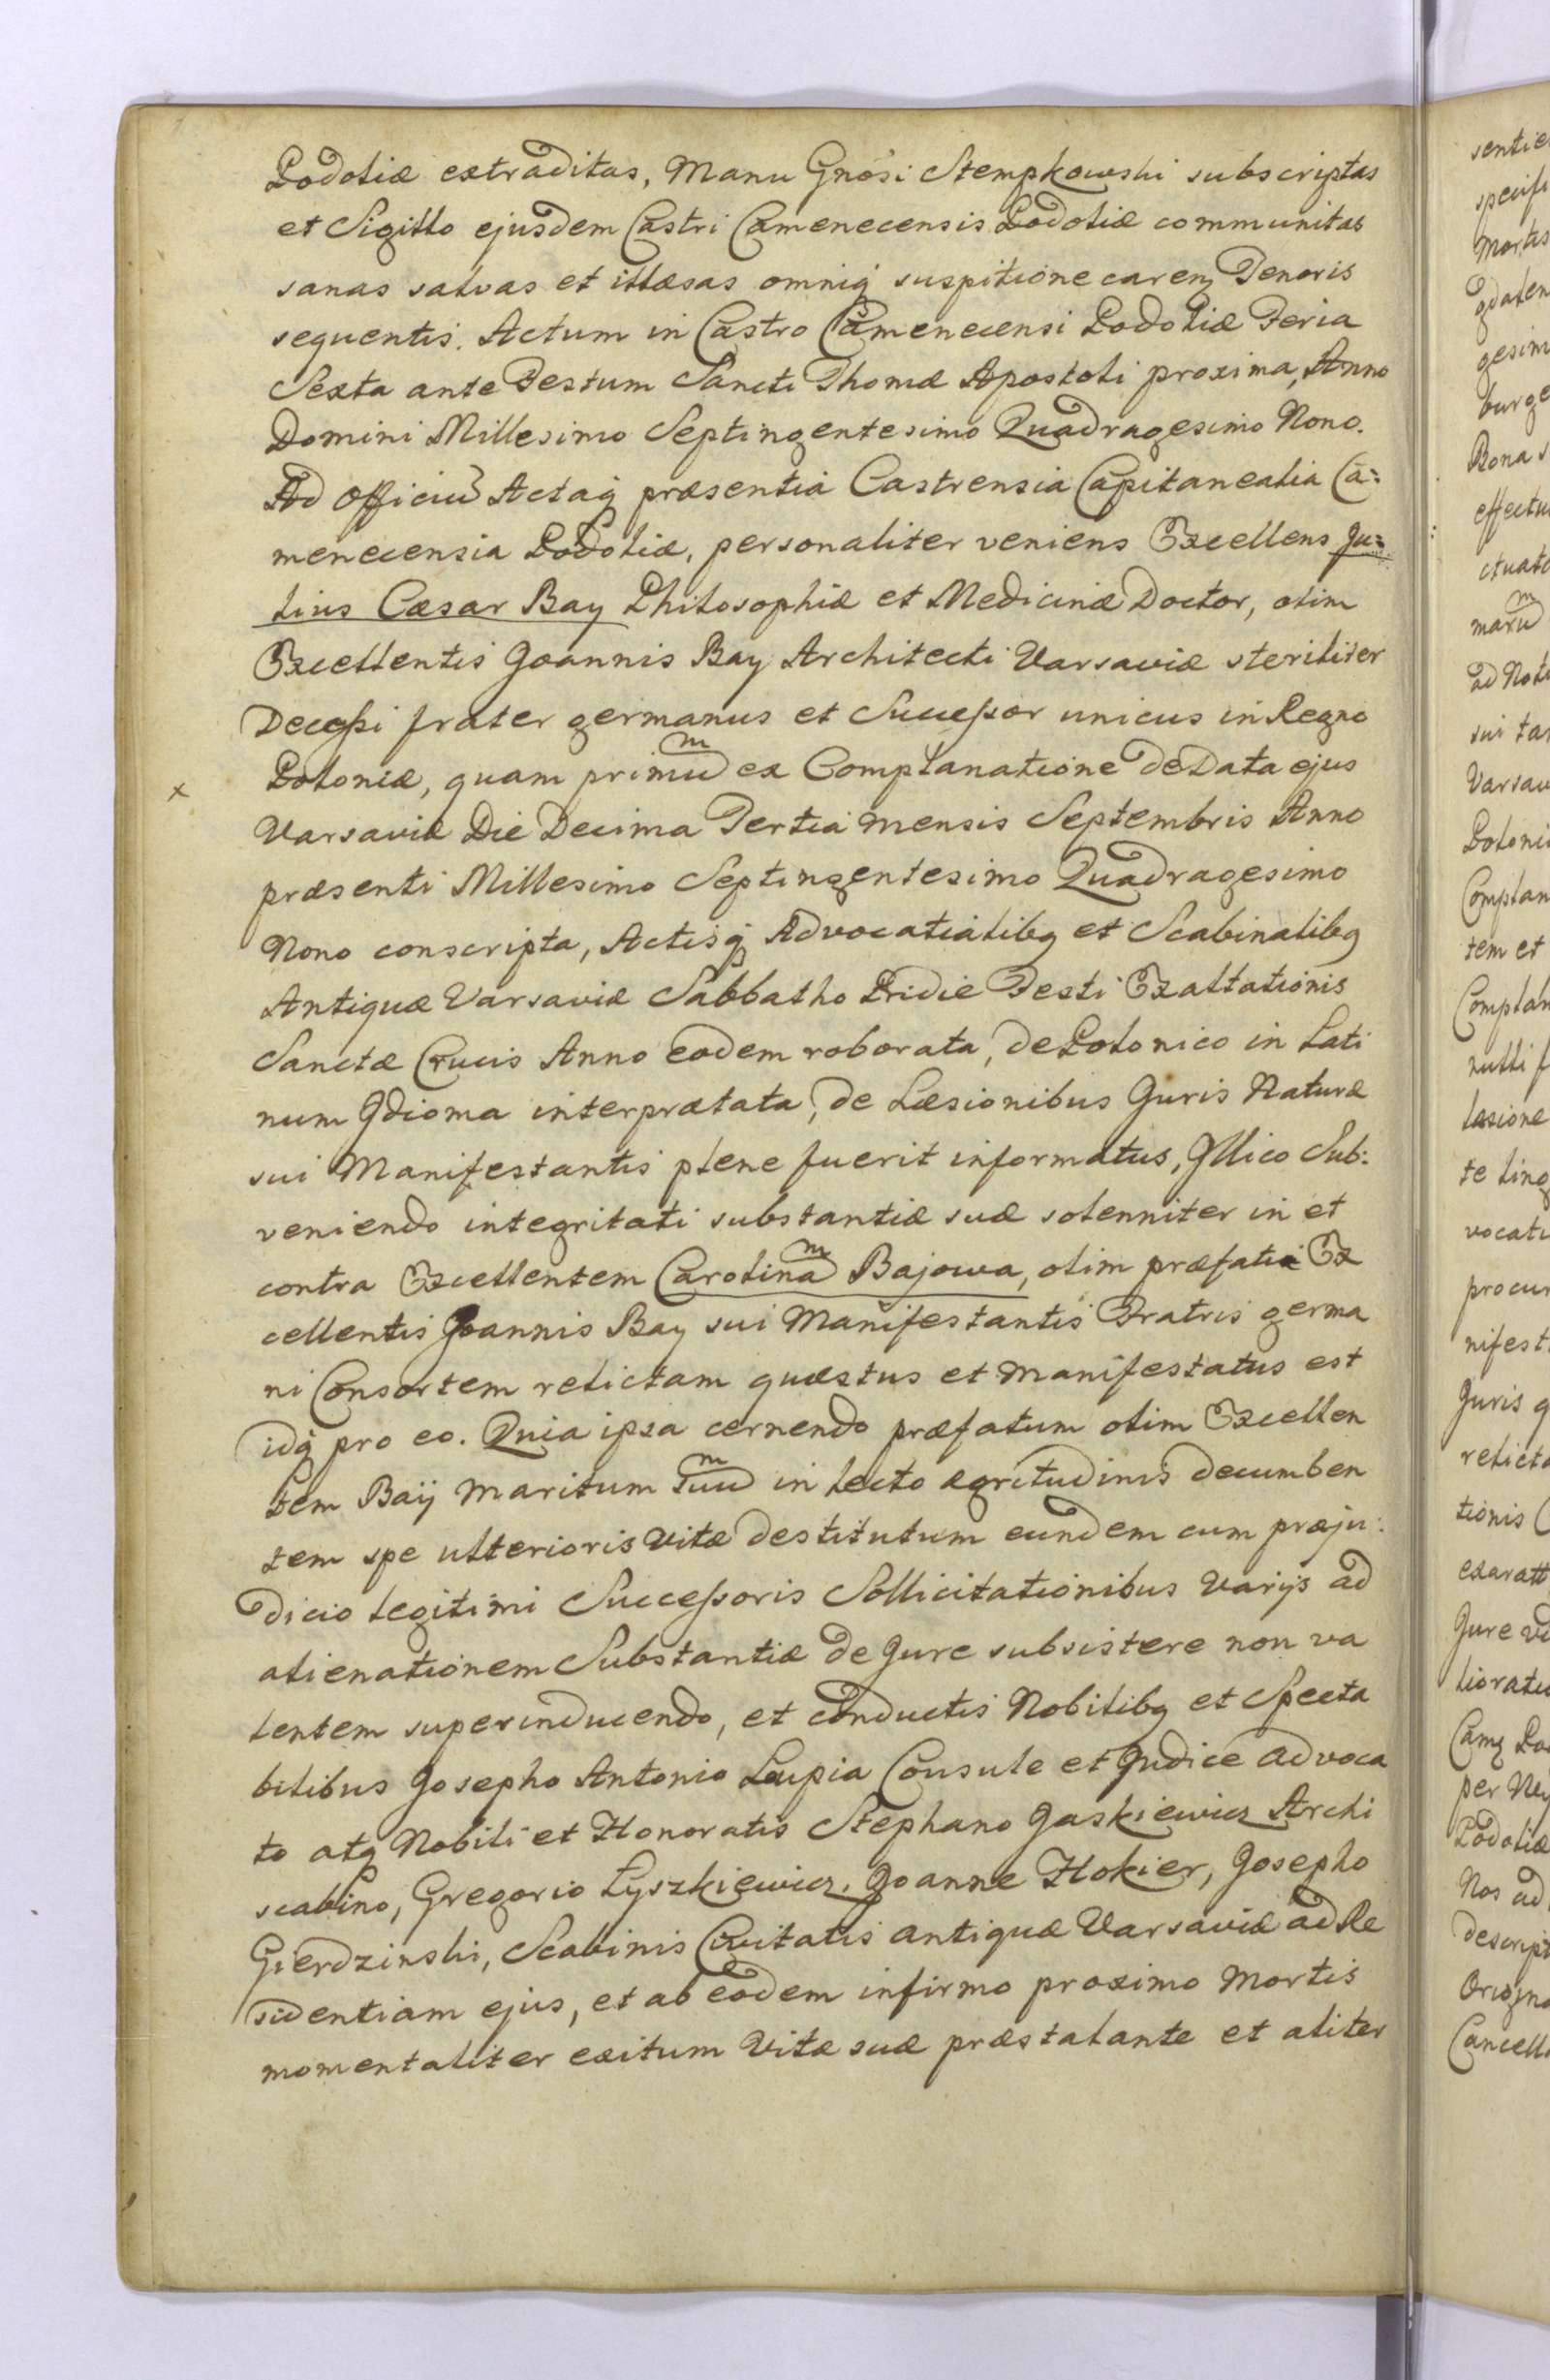 Podoliæ extraditas, Manu Gnosi Stempkowski subscriptas
et Sigillo ejusdem Castri Camenecensis Podoliæ communitas
sanas salvas et illæsas omniq suspitione careñ Tenoris
sequentis. Actum in Castro Camenecensi Podoliæ Feria
Sexta ante Festum Sancti Thomæ Apostoli proxima, Anno
Domini Millesimo Septingentesimo Quadragesimo Nono.
Ad Officiũ Actaq præsentia Castrensia Capitanealia Ca=
menecensia Podoliæ, personaliter veniens Excellens Ju=
lius Cæsar Bay Philosophiæ et Medicinæ Doctor, olim
Excellentis Joannis Bay Architecti Varsaviæ steriliter
Decessi frater germanus et Successor unicus in Regno
x Poloniæ, quam primuᵐ ex Complanatione de Data ejus
Varsaviæ Die Decima Tertia mensis Septembris Anno
præsenti Millesimo Septingentesimo Quadragesimo
Nono conscripta, Actisq Advocatialibq et Scabinalibq
Antiquæ Varsaviæ Sabbatho Pridie Festi Exaltationis
Sanctæ Crucis Anno eodem roborata, de Polonico in Lati
num Idioma interprætata, de Læsionibus Juris Naturæ
sui Manifestantis plene fuerit informatus, Illico Sub:
veniendo integritati substantiæ suæ solenniter in et
contra Excellentem Carolinaᵐ Bajowa, olim præfati Ex
cellentis Joannis Bay sui Manifestantis Fratris germa
ni Consortem relictam quæstus et manifestatus est
idq pro eo. Quia ipsa cernendo præfatum olim Excellen
tem Baÿ Maritum suuᵐ in lecto ægritudinis decumben
tem spe ulterioris Vitæ destitutum eundem cum præju:
dicio legitimi Successoris Sollicitationibus Varijs ad
alienationem Substantiæ de Jure subsistere non va
lentem superinducendo, et conductis Nobilibq et Specta
bilibus Josepho Antonio Lupia Consule et Judice advoca
to atq Nobili et Honoratis Stephano Jaskiewicz Archi
scabino, Gregorio Łyszkiewicz, Joanne Hokier, Josepho
Gierdzinski, Scabinis Civitatis antiquæ Varsaviæ ad Re
sidentiam ejus, et ab eodem infirmo proximo Mortis
momentaliter exitum Vitæ suæ præstalante et aliter
sentie
specifi
Mortis
gesim
burge
Bona s
effectu
ctuat
maruᵐ
ad Not
sui ta
Varsav
Poloni
Complan
tem et
Complan
nulli f
læsione
te ling
vocati
procur
nifest
Juris q
relict
tionis C
exaratt
liorat
per Ne
Podoliæ
Nos ad
descript
Origin
Cancell